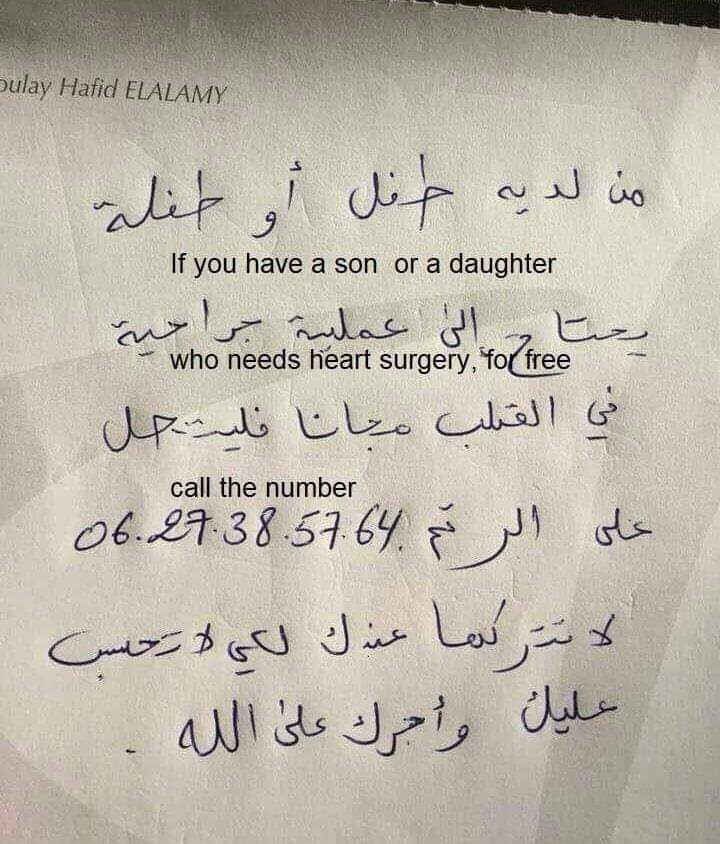 oulay Hafid ELALAMY
من لديه طفل أو طفلة
If you have a son or a daughter
يحتاج إلى عملية جراحية
who needs heart surgery, for free
في القلب مجانا فليتصل
call the number
على الرقم 06.27.38.57.64.
لا تتركها عندك لكي لا تحسب
عليك وأجرك على الله .